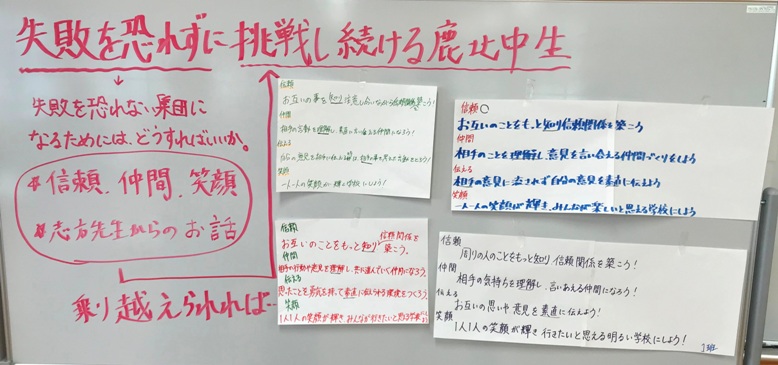 失敗を恐れずに挑戦し続ける鹿北中生
失敗を恐れない集団に
なるためには、どうすればいいか。
信頼、仲間、笑顔
志方先生からのお話
乗り越えられれば…
信頼
お互いの事を知り注意し合いながら信頼関係を築こう!
仲間
相手の言動を理解し、素直に言い合える仲間になろう!
伝える
笑顔
一人一人の笑顔が輝く学校にしよう!
信頼○
お互いのことをもっと知り信頼関係を築こう
仲間
相手のことを理解し、意見を言い合える仲間づくりをしよう
伝える
相手の意見に流されず自分の意見を素直に伝えよう
笑顔
一人一人の笑顔が輝き、みんなが楽しいと思える学校にしよう
信頼
お互いのことをもっと知り信頼関係を築こう。
仲間
相手の行動や意見を理解し、
仲間になろう。
伝える
思ったことを勇気を持って素直に伝えられる環境をつくろう。
笑顔
1人1人の笑顔が輝きみんなが行きたいと思える学校にしよう
信頼
周りの人のことをもっと知り信頼関係を築こう!
仲間
相手の気持ちを理解し、言いあえる仲間になろう!
伝える
お互いの思いや意見を素直に伝えよう!
笑顔
1人1人の笑顔が輝き行きたいと思える明るい学校にしよう!
1班